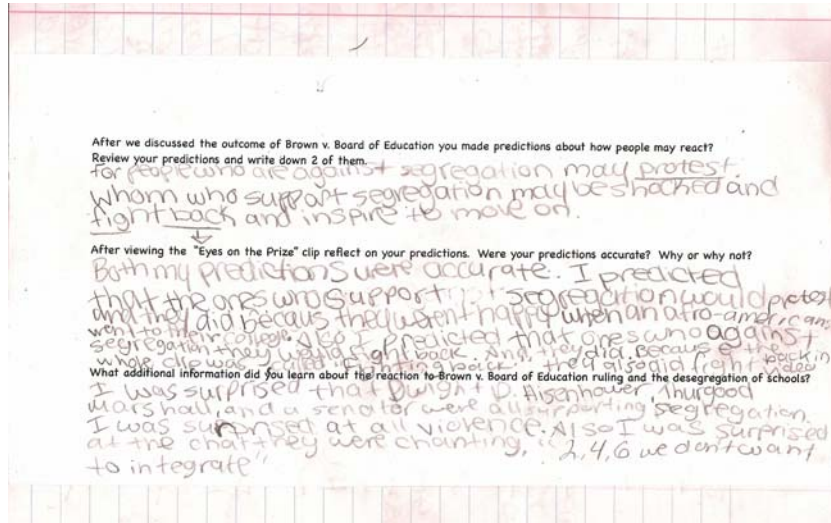 After we discussed the outcome of Brown v. Board of Education you made predictions about how people may react?
Review your predictions and write down 2 of them.
For people who are against segregation may protest.
whom who support segregation may be shocked and
fight back and inspire to move on.
After viewing the "Eyes on the Prize" clip reflect on your predictions. Were your predictions accurate? Why or why not?
Both my predictions were accurate. I predicted
that the ones who support segregation would protest
and they did becaus they werent happy when an afro-american
went to their college. Also I predicted that ones who against
segregation they would fight back. And they did. Because the
whole clip was back. they also did fight back in video
What additional information did you learn about the reaction to Brown v. Board of Education ruling and the desegregation of schools?
I was surprised that Dwight D. Aisenhower, Thurgood
Marshall, and a senator were all supporting segregation.
I was surprised at all violence. Also I was surprised
at the chat they were chanting, "2,4,6 we dont want
to integrate"